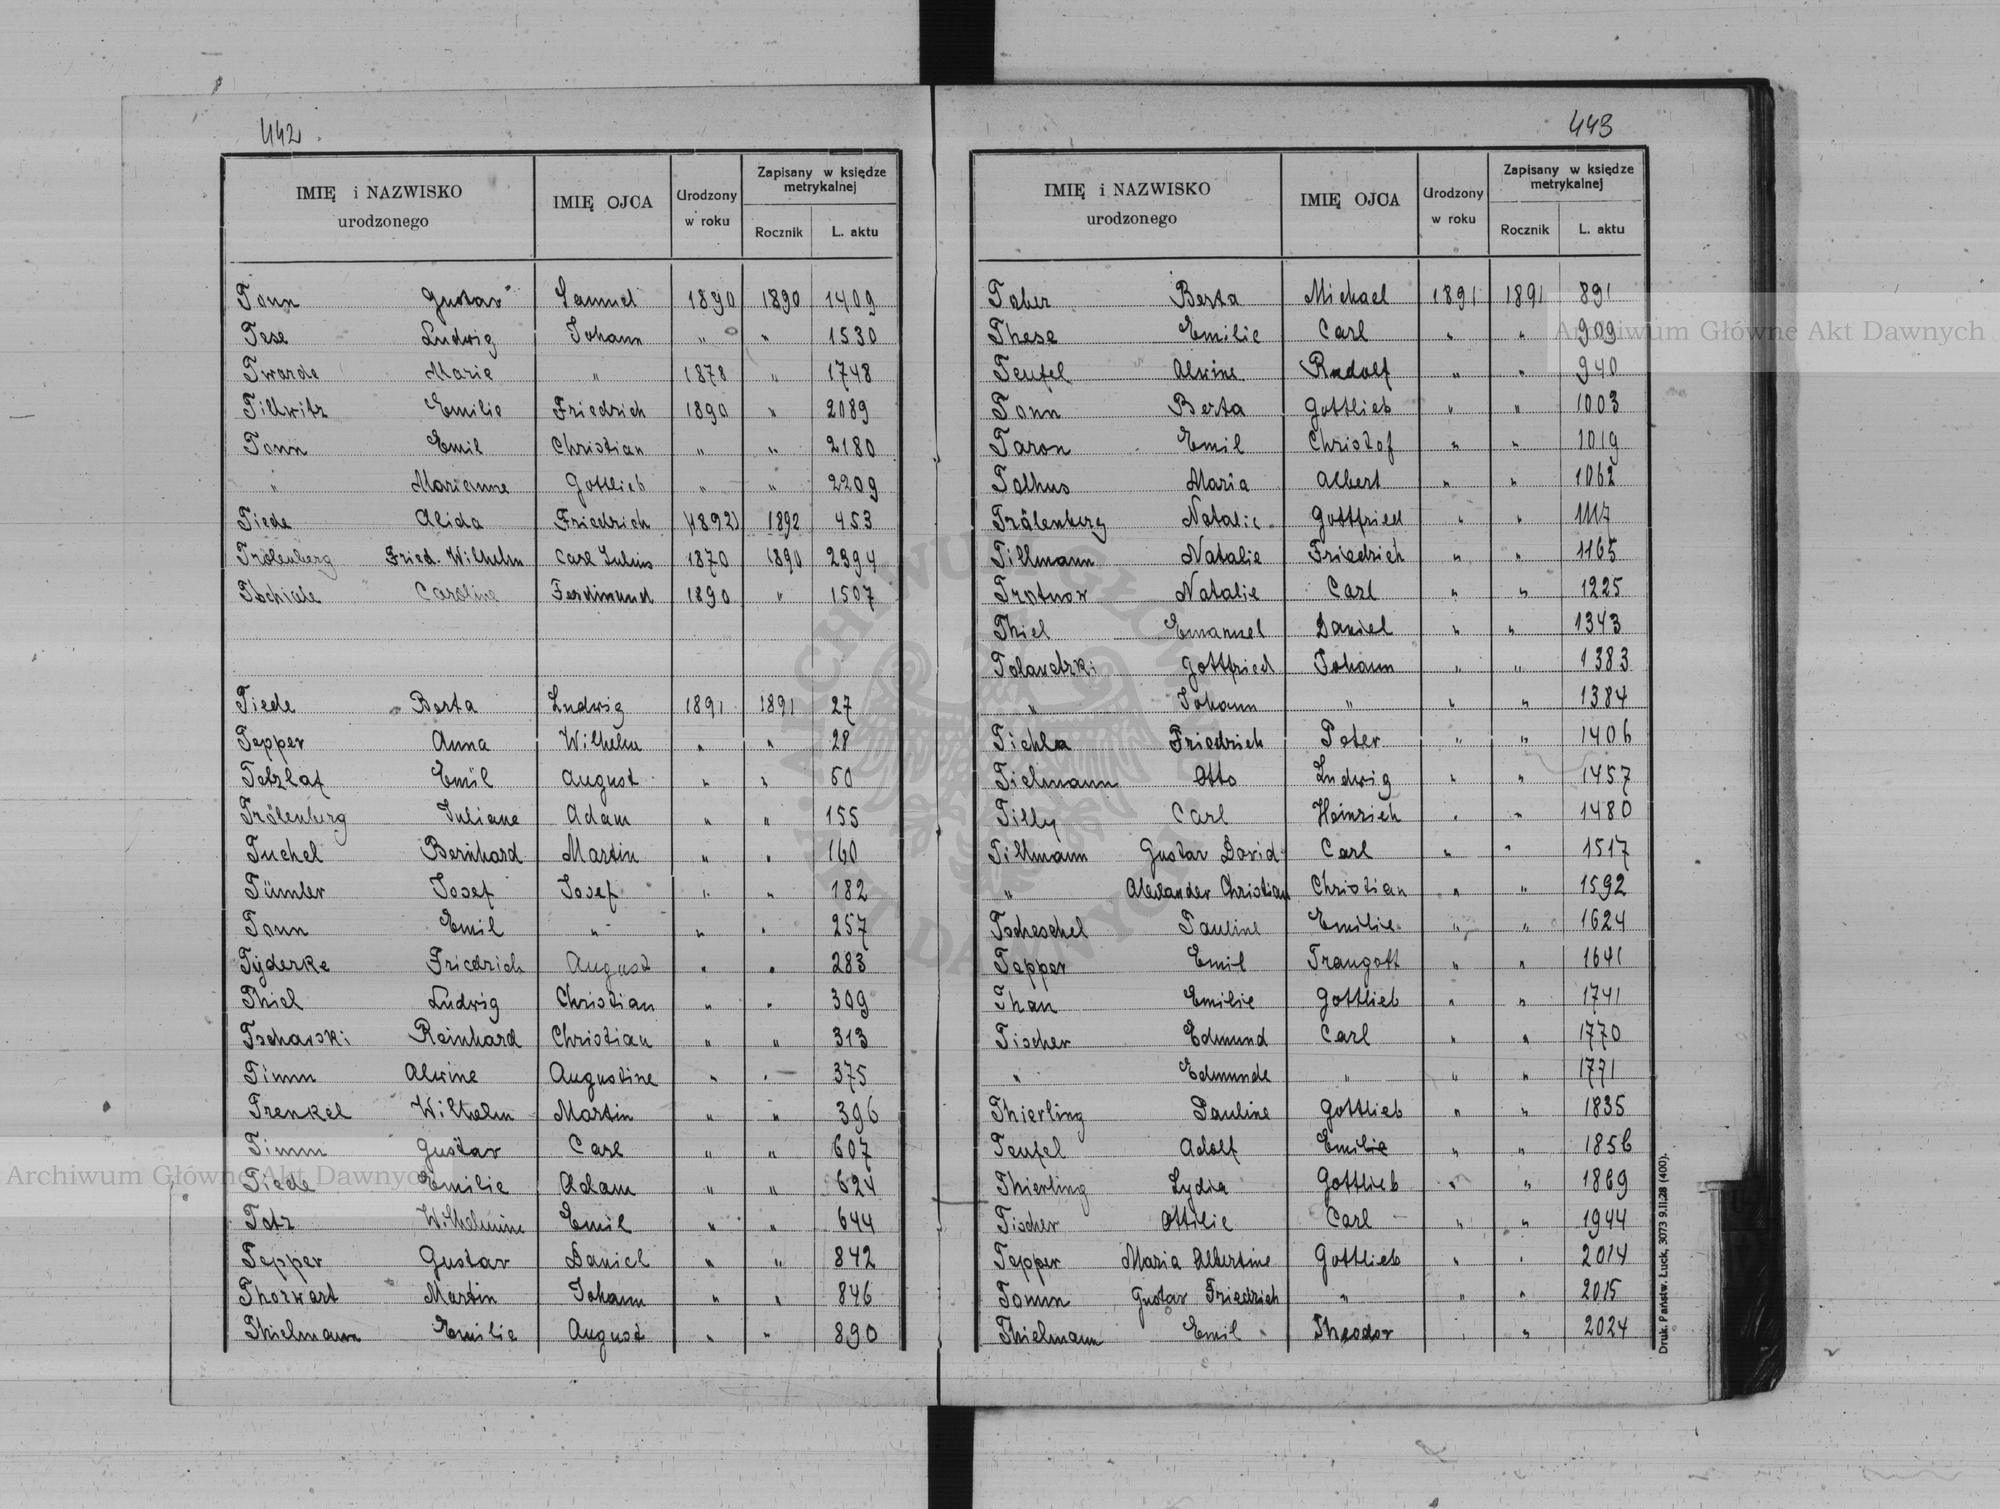 442
IMIĘ i NAZWISKO urodzonego | IMIĘ OJCA | Urodzony w roku | Zapisany w księdze metrykalnej
Rocznik | L. aktu
Tonn Gustav Samuel 1890 1890 1409
Tese Ludwig Johann " " 1530
Twarde Marie " 1878 " 1748
Tillwitz Emilie Friedrich 1890 " 2089
Tonn Emil Christian " " 2180
" Marianne Gottlieb " " 2209
Tiede Alida Friedrich (1892) 1892 453
Trölenberg Fried. Wilhelm Carl Julius 1870 1890 2394
Caroline Ferdinand 1890 " 1507
Tiede Berta Ludwig 1891 1891 27
Tepper Anna Wilhelm " " 28
Tetzlaf Emil August " " 60
Trölenberg Juliane Adam " " 155
Tuchel Bernhard Martin " " 160
Tümler Josef Josef " " 182
Tonn Emil " " " 257
Tyderke Friedrich August " " 283
Thiel Ludwig Christian " " 309
Reinhard Christian " " 313
Timm Alwine Augustine " " 375
Trenkel Wilhelm Martin " " 396
Timm Gustav Carl " " 607
Tiede Emilie Adam " " 624
Tatz Wilhelmine Emil " " 644
Tepper Gustav Daniel " " 842
Thorwart Martin Johann " " 846
Thielmann Emilie August " " 890
443
IMIĘ i NAZWISKO urodzonego | IMIĘ OJCA | Urodzony w roku | Zapisany w księdze metrykalnej
Rocznik | L. aktu
Tober Berta Michael 1891 1891 891
These Emilie Carl " " 909
Teufel Alwine Rudolf " " 940
Tonn Berta Gottlieb " " 1003
Taron Emil Christof " " 1019
Tolhus Maria Albert " " 1062
Trälenberg Natalie Gottfried " " 1117
Tillmann Natalie Friedrich " " 1165
Trotnow Natalie Carl " " 1225
Thiel Emanuel Daniel " " 1343
Gottfried Johann " " 1383
" Johann " " " 1384
Tichla Friedrich Peter " " 1406
Tielmann Otto Ludwig " " 1457
Tilly Carl Heinrich " " 1480
Tillmann Gustav David Carl " " 1517
" Alexander Christian Christian " " 1592
Tscheschel Pauline Emilie " " 1624
Tepper Emil Traugott " " 1641
Than Emilie Gottlieb " " 1741
Tischer Edmund Carl " " 1770
" Edmunde " " " 1771
Thierling Pauline Gottlieb " " 1835
Teufel Adolf Emilie " " 1856
Thierling Lydia Gottlieb " " 1869
Tischer Ottilie Carl " " 1944
Tepper Maria Albertine Gottlieb " " 2014
Tomm Gustav Friedrich " " " 2015
Thielmann Emil Theodor " " 2024
Druk. Państw. Łuck, 3073 9.II.28 (400).
Archiwum Główne Akt Dawnych
Archiwum Główne Akt Dawnych
ARCHIWUM GŁÓWNE AKT DAWNYCH